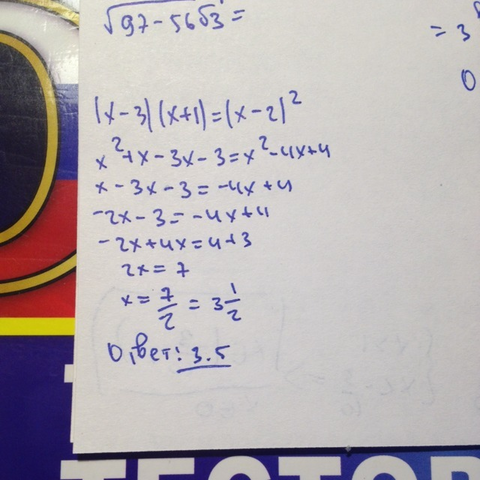 √97-56√3 =
= 3
0
(x-3)(x+1)=(x-2)²
x²+x-3x-3=x²-4x+4
x-3x-3=-4x+4
-2x-3=-4x+4
-2x+4x=4+3
2x=7
x=7/2=3 1/2
Ответ: 3.5